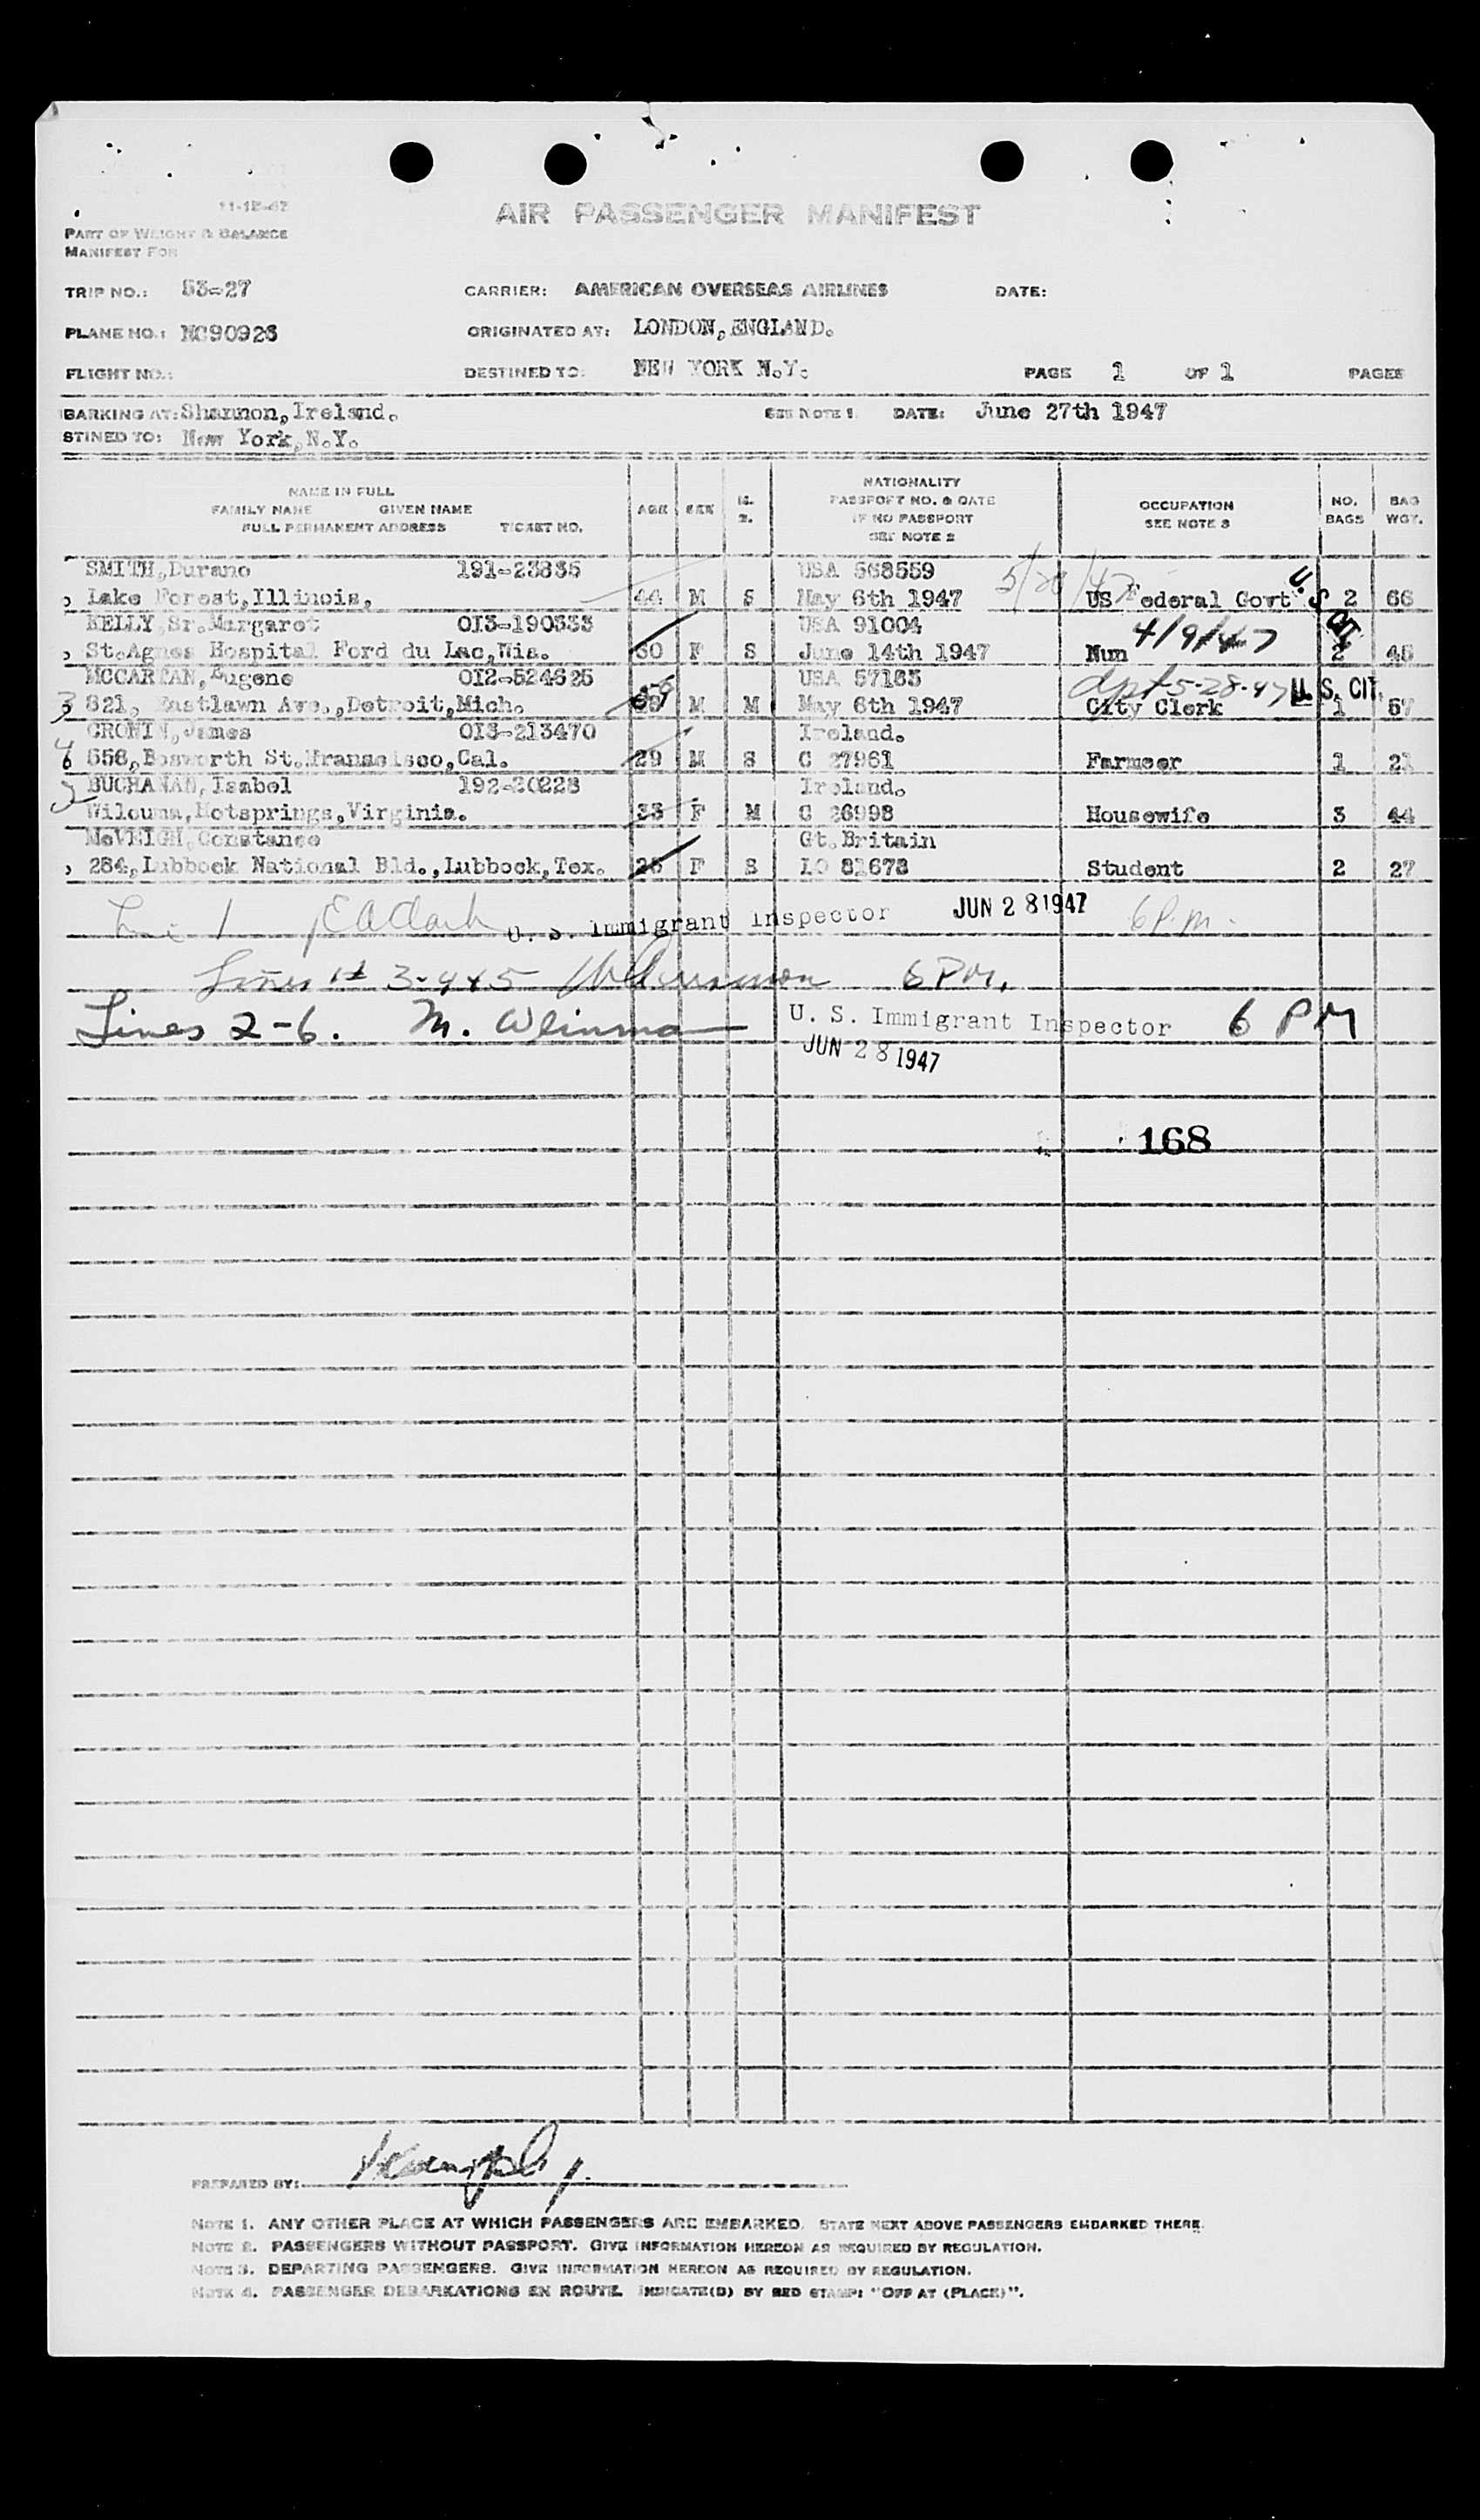 11-18-47
AIR PASSENGER MANIFEST
PART OF WEIGHT & BALANCE
MANIFEST FOR
TRIP NO.: 53-27 CARRIER: AMERICAN OVERSEAS AIRLINES DATE:
PLANE NO.: NC90926 ORIGINATED AT: LONDON, ENGLAND.
FLIGHT NO.: DESTINED TO: NEW YORK N.Y. PAGE 1 OF 1 PAGES
BARKING AT: Shannon, Ireland. SEE NOTE 1. DATE: June 27th 1947
STINED TO: New York, N.Y.
NAME IN FULL
FAMILY NAME GIVEN NAME
FULL PERMANENT ADDRESS TICKET NO.
AGE SEX M. S.
NATIONALITY
PASSPORT NO. & DATE
IF NO PASSPORT
SEE NOTE 2
OCCUPATION
SEE NOTE 3
NO. BAGS
BAG WGT.
SMITH, Durano 191-23835 USA 568559
Lake Forest, Illinois, 44 M S May 6th 1947 5/28/47 US Federal Govt. U. S. CIT. 2 66
KELLY, Sr. Margaret OI3-190333 USA 91004 4/9/47
St. Agnes Hospital Ford du Lac, Wis. 60 F S June 14th 1947 Nun 2 45
MCCARTAN, Eugene OI2-524625 USA 57185 dpt 5-28-47 U. S. CIT.
3 821, Eastlawn Ave., Detroit, Mich. M M May 6th 1947 City Clerk 1 57
CRONIN, James OI3-213470 Ireland.
4 556, Bosworth St. Franscisco, Cal. 29 M S C 27961 Farmeer 1 21
BUCHANAN, Isabel 192-20228 Ireland.
5 Wilouma, Hotsprings, Virginia. 33 F M C 26998 Housewife 3 44
McVEIGH, Constance Gt. Britain
284, Lubbock National Bld., Lubbock, Tex. 25 F S LO 81673 Student 2 27
Line 1 U. S. Immigrant Inspector JUN 28 1947 6 P.m.
Lines # 3-4+5 6 PM.
Lines 2-6. M. Weinman U. S. Immigrant Inspector 6 PM
JUN 28 1947
168
PREPARED BY:
NOTE 1. ANY OTHER PLACE AT WHICH PASSENGERS ARE EMBARKED. STATE NEXT ABOVE PASSENGERS EMBARKED THERE.
NOTE 2. PASSENGERS WITHOUT PASSPORT. GIVE INFORMATION HEREON AS REQUIRED BY REGULATION.
NOTE 3. DEPARTING PASSENGERS. GIVE INFORMATION HEREON AS REQUIRED BY REGULATION.
NOTE 4. PASSENGER DEBARKATIONS EN ROUTE. INDICATE(D) BY RED STAMP: "OFF AT (PLACE)".